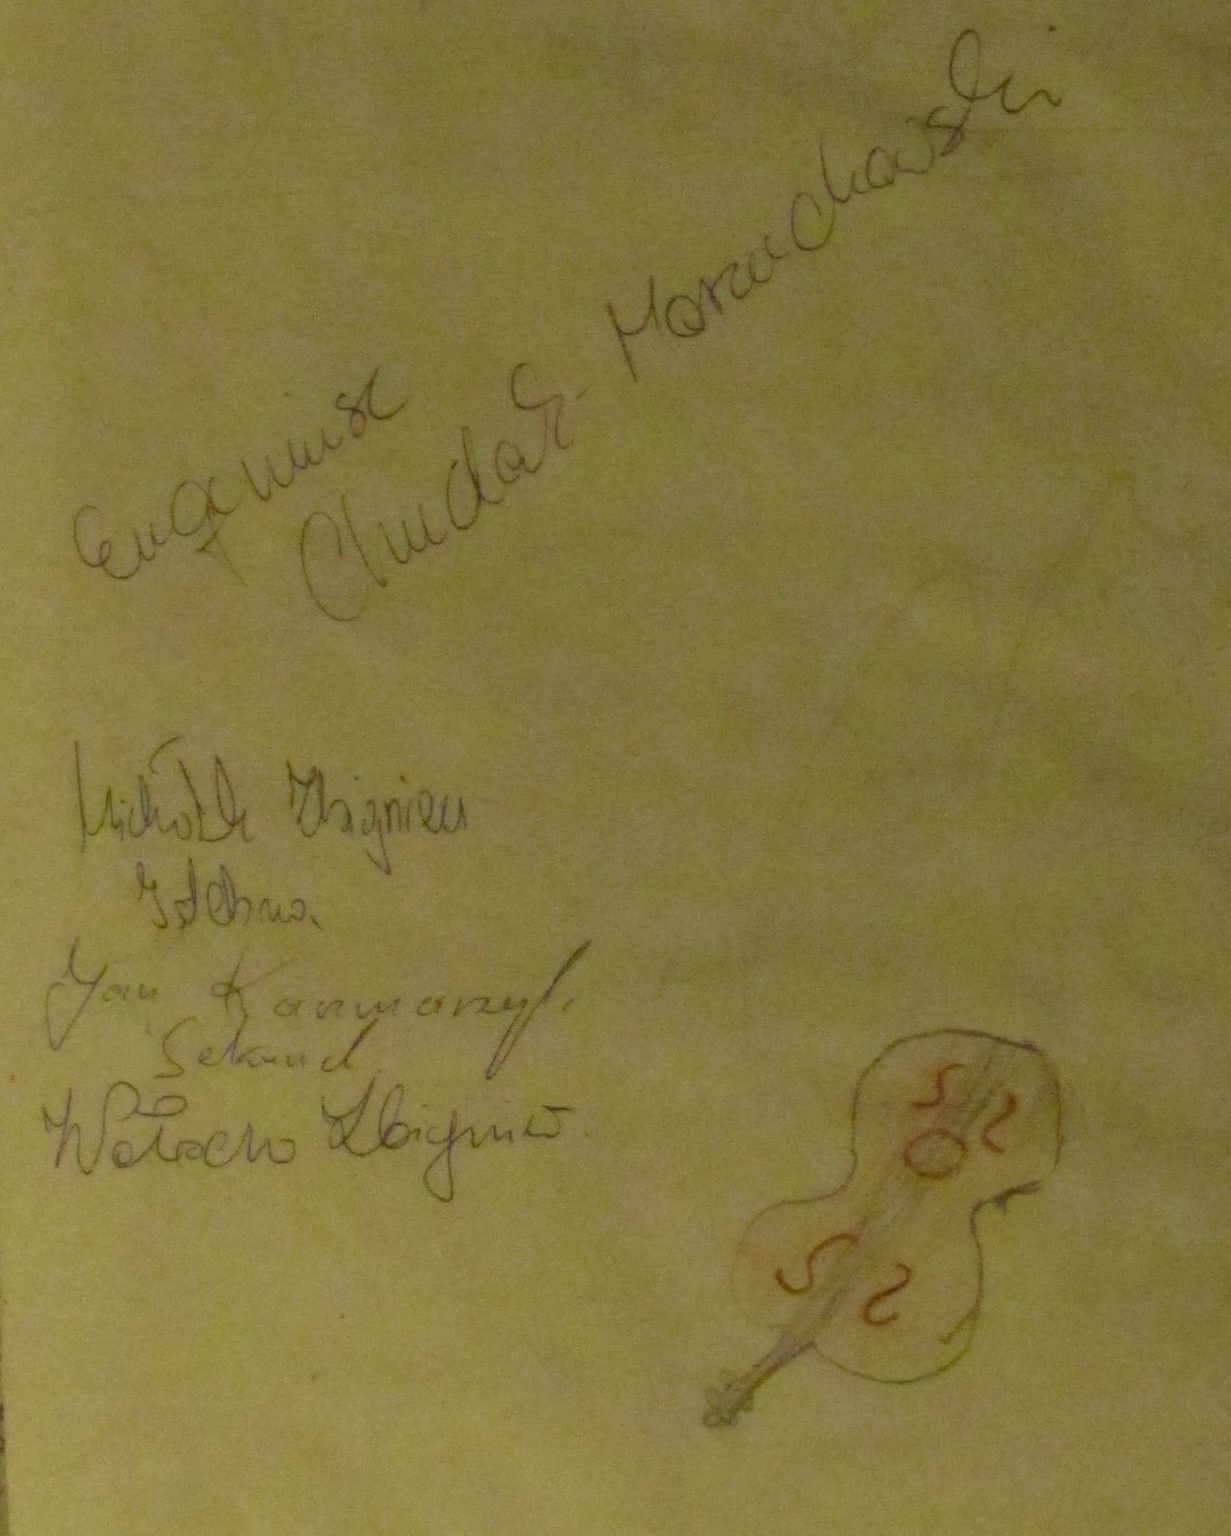 Eugeniusz
Chudak-Morzuchowski
Michałek Zbigniew
Istebna
Jan Kaczmarzyk
Sekund
Wałach Zbigniew